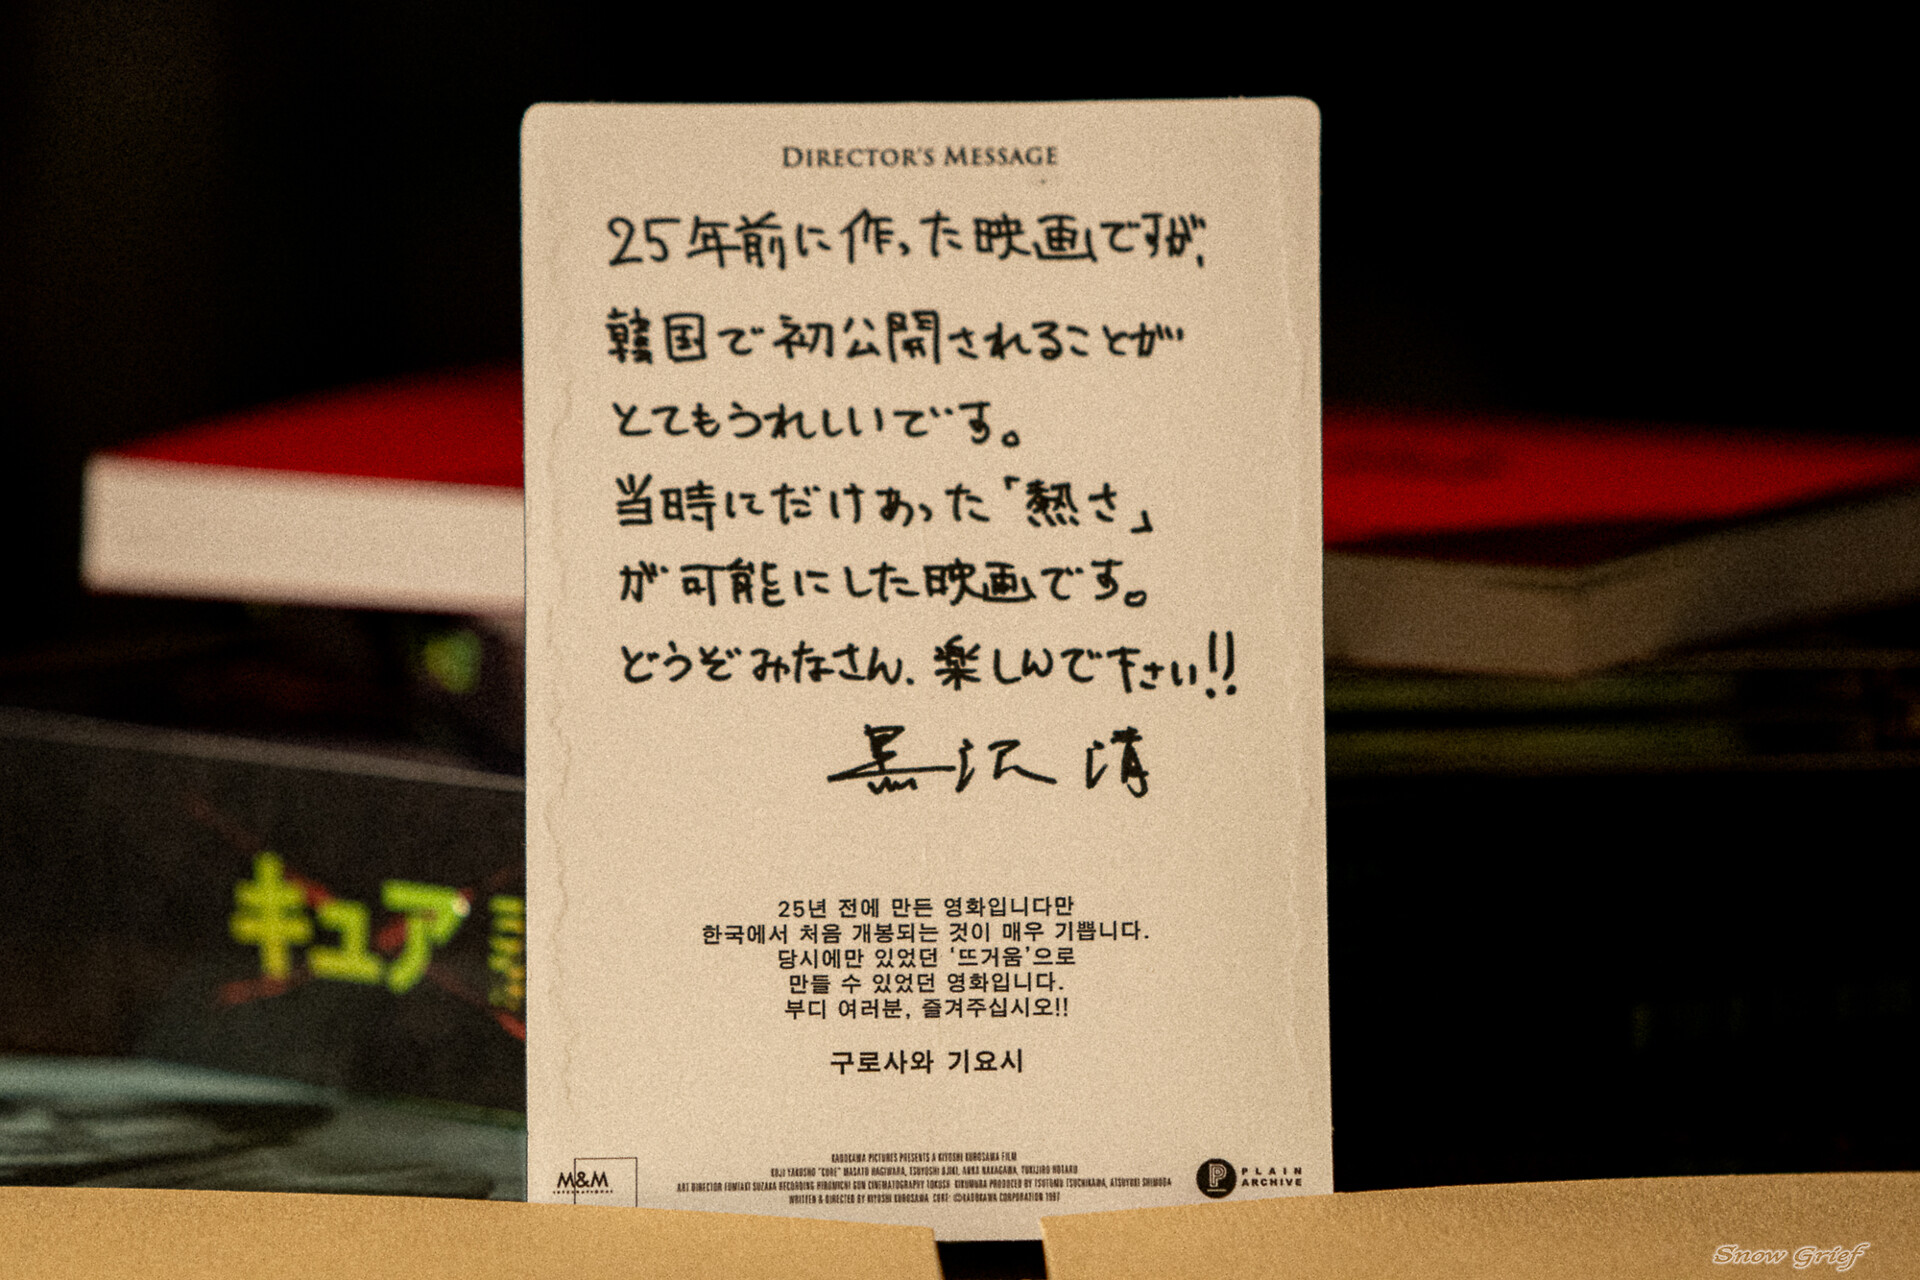 DIRECTOR'S MESSAGE
25年前に作った映画ですが、
韓国で初公開されることが
とてもうれしいです。
当時にだけあった「熱さ」
が可能にした映画です。
どうぞみなさん、楽しんで下さい!!
黒沢 清
25년 전에 만든 영화입니다만
한국에서 처음 개봉되는 것이 매우 기쁩니다.
당시에만 있었던 ‘뜨거움’으로
만들 수 있었던 영화입니다.
부디 여러분, 즐겨주십시오!!
구로사와 기요시
キュア
M&M
INTERNATIONAL
KADOKAWA PICTURES PRESENTS A KIYOSHI KUROSAWA FILM
KOJI YAKUSHO "CURE" MASATO HAGIWARA, TSUYOSHI UJIKI, ANNA NAKAGAWA, YUKIJIRO HOTARU
ART DIRECTOR TOMOYUKI MARUO RECORDING HIROMICHI GUN CINEMATOGRAPHY TOKUSHO KIKUMURA PRODUCED BY TSUTOMU TSUCHIKAWA, ATSUYUKI SHIMODA
WRITTEN & DIRECTED BY KIYOSHI KUROSAWA CURE: ©KADOKAWA CORPORATION 1997
PLAIN
ARCHIVE
Snow Grief